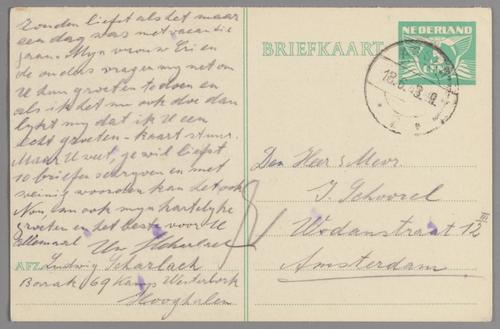 zouden liefst als het maar
een dag was met vacantie
gaan. Mijn vrouw Eri en
de ouders vragen mij net om
U hun groeten te doen en
als ik het nu ook doe dan
lijkt mij dat ik U een
echt groeten-kaart stuur.
Maar U weet, je wil liefst
10 brieven schrijven en met
weinig woorden kan het ook
Nou dan ook mijn hartelijke
groeten en het beste voor U
allemaal Uw Scharlach
AFZ. Ludwig Scharlach
Barak 69 Kamp Westerbork
Hooghalen
BRIEFKAART
NEDERLAND
CENT
18.6.43.19
Den Heer & Mevr
J. Schoorel
Wodanstraat 12 III
Amsterdam